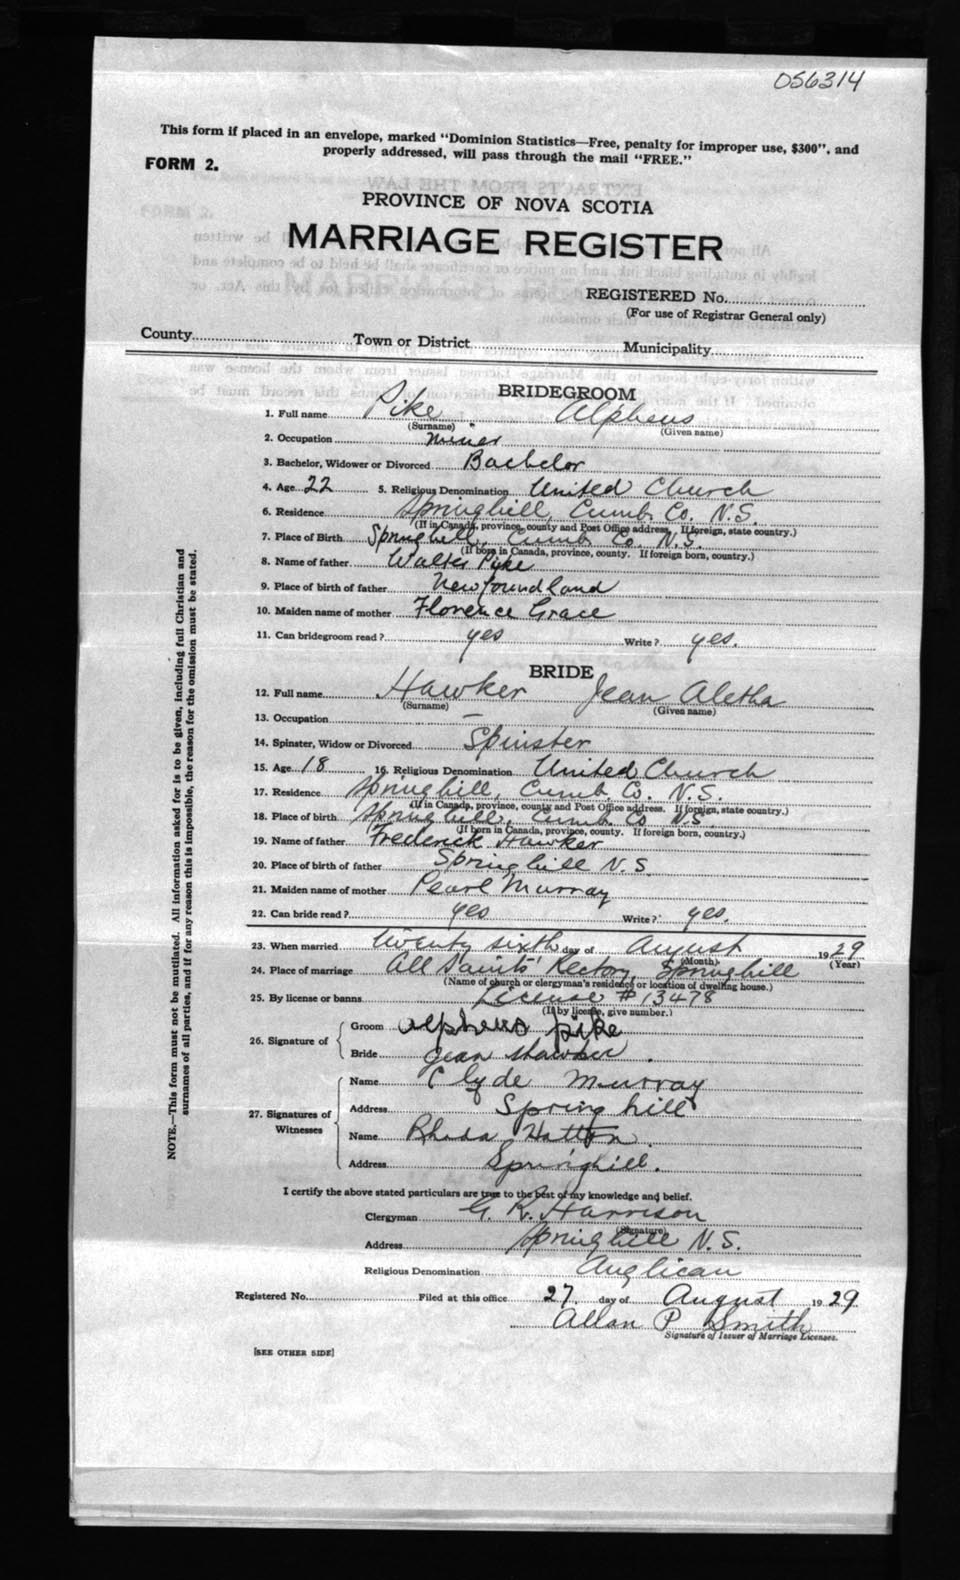 056314
This form if placed in an envelope, marked "Dominion Statistics—Free, penalty for improper use, $300", and
properly addressed, will pass through the mail "FREE."
FORM 2.
PROVINCE OF NOVA SCOTIA
MARRIAGE REGISTER
REGISTERED No.
(For use of Registrar General only)
County Town or District Municipality
BRIDEGROOM
1. Full name Pike Alpheus
(Surname) (Given name)
2. Occupation miner
3. Bachelor, Widower or Divorced Bachelor
4. Age 22 5. Religious Denomination United Church
6. Residence Springhill, Cumb. Co. N.S.
(If in Canada, province, county and Post Office address. If foreign, state country.)
7. Place of Birth Springhill, Cumb. Co. N.S.
(If born in Canada, province, county. If foreign born, country.)
8. Name of father Walter Pike
9. Place of birth of father Newfoundland
10. Maiden name of mother Florence Grace
11. Can bridegroom read? yes Write? yes.
BRIDE
12. Full name Hawker Jean Aletha
(Surname) (Given name)
13. Occupation —
14. Spinster, Widow or Divorced Spinster
15. Age 18 16. Religious Denomination United Church
17. Residence Springhill, Cumb. Co. N.S.
(If in Canada, province, county and Post Office address. If foreign, state country.)
18. Place of birth Springhill, Cumb. Co N.S.
(If born in Canada, province, county. If foreign born, country.)
19. Name of father Frederick Hawker
20. Place of birth of father Springhill N.S.
21. Maiden name of mother Pearl Murray
22. Can bride read? yes Write? yes.
23. When married twenty sixth day of August 1929
(Month) (Year)
24. Place of marriage All Saints' Rectory, Springhill
(Name of church or clergyman's residence or location of dwelling house.)
25. By license or banns License # 13478
(If by license, give number.)
26. Signature of Groom alpheus pike
Bride Jean Hawker.
27. Signatures of Witnesses
Name Clyde Murray
Address Springhill
Name Rhoda Hatton.
Address Springhill.
I certify the above stated particulars are true to the best of my knowledge and belief.
Clergyman G. R. Harrison
(Signature)
Address Springhill N.S.
Religious Denomination Anglican
Registered No. Filed at this office 27 day of August 1929
Allan P Smith
Signature of Issuer of Marriage Licenses.
[SEE OTHER SIDE]
NOTE.—This form must not be mutilated. All information asked for is to be given, including full Christian and
surnames of all parties, and if for any reason this is impossible, the reason for the omission must be stated.